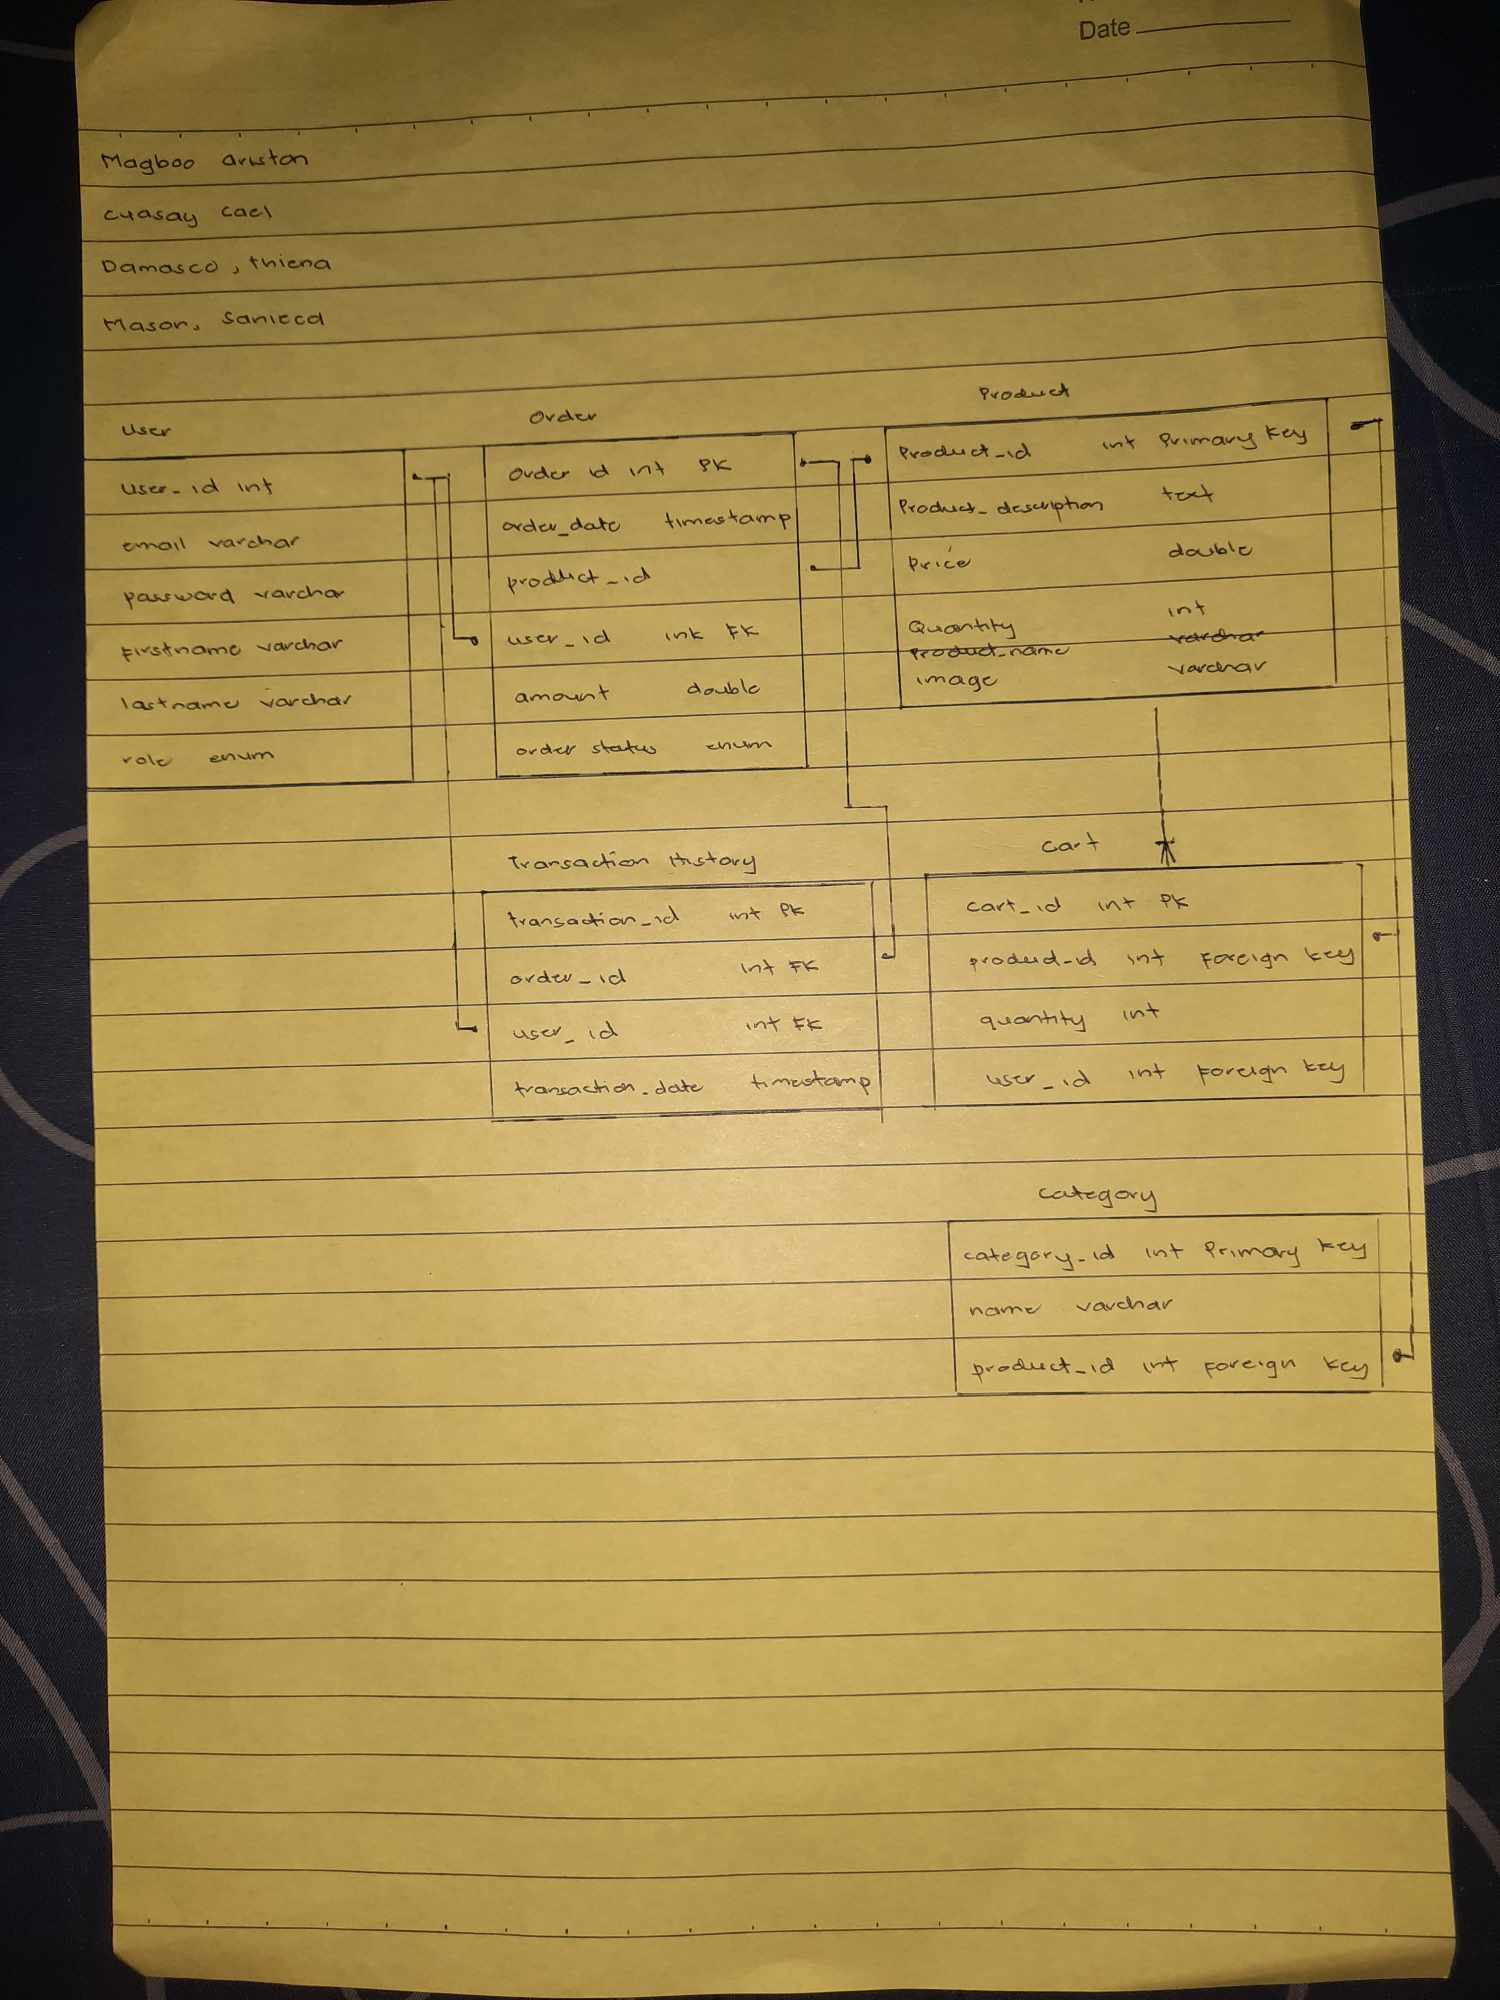 Date
Magboo ariston
cuasay cael
Damasco, thiena
Mason, Saniecd
User
user_id int
email varchar
password varchar
firstname varchar
lastname varchar
role enum
Order
order id int PK
order_date timestamp
product_id
user_id ink FK
amount double
order status enum
Product
Product_id int Primary Key
Product_description text
Price double
Quantity int
Product_name varchar
image varchar
Transaction History
transaction_id int PK
order_id int FK
user_id int FK
transaction_date timestamp
cart
cart_id int PK
product_id int Foreign key
quantity int
user_id int Foreign key
category
category_id int Primary key
name varchar
product_id int Foreign key